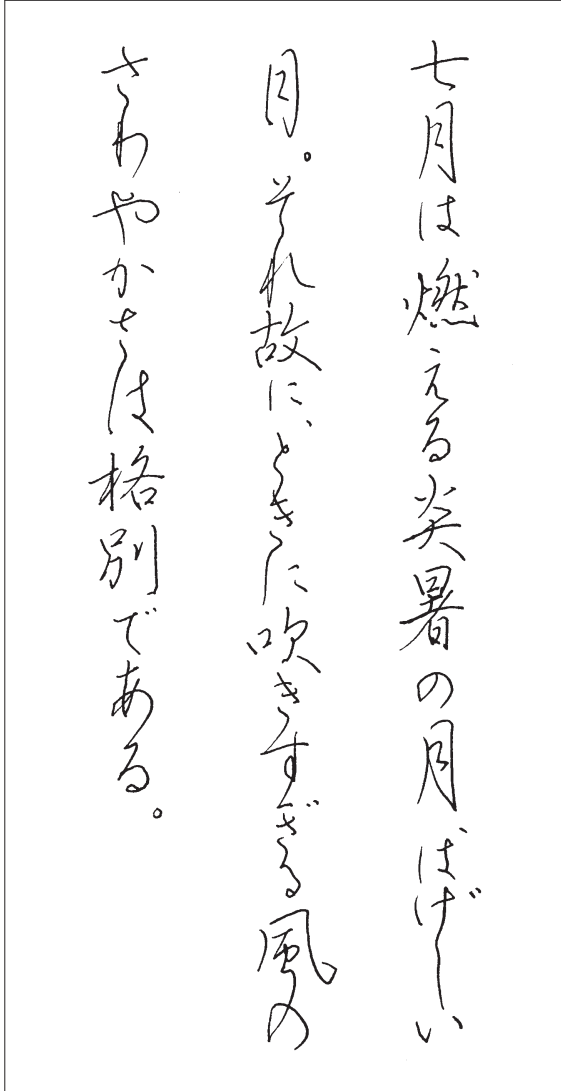 七月は燃える炎暑の月、はげしい
月。それ故に、ときに吹きすぎる風の
さわやかさは格別である。